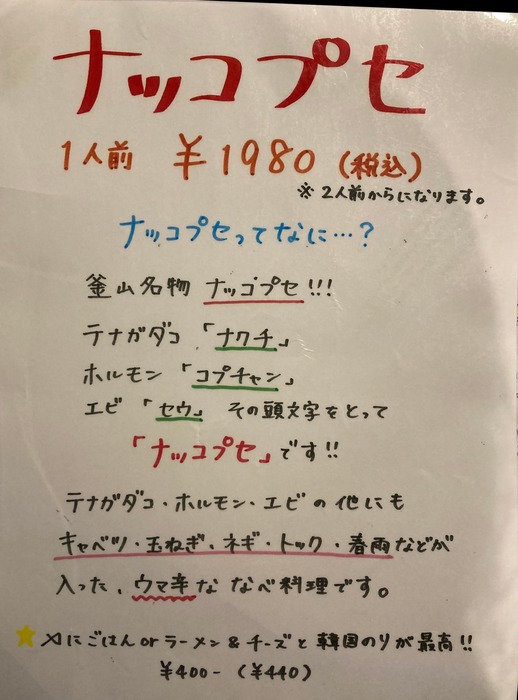 ナッコプセ
1人前 ¥1980 (税込)
※2人前からになります。
ナッコプセってなに…?
釜山名物 ナッコプセ!!!
テナガダコ「ナクチ」
ホルモン「コプチャン」
エビ「セウ」 その頭文字をとって
「ナッコプセ」です!!
テナガダコ・ホルモン・エビの他にも
キャベツ・玉ねぎ・ネギ・トック・春雨などが
入った、ウマ辛な なべ料理です。
〆にごはんorラーメン&チーズと韓国のりが最高!!
¥400- (¥440)